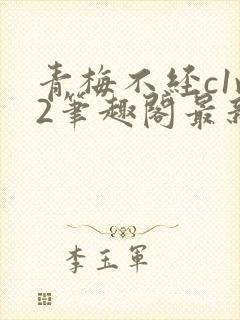 青梅不经c1v
2筆趣阁最新
李玉軍